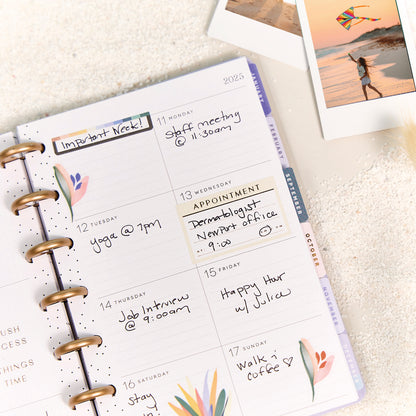 2025
Important Week!
11 MONDAY
Staff meeting
@ 11:30am
12 TUESDAY
yoga @ 7pm
13 WEDNESDAY
APPOINTMENT
Dermatologist
Newport office
9:00
14 THURSDAY
Job Interview
@ 9:00am
15 FRIDAY
Happy Hour
w/ Julia
16 SATURDAY
Stay
in
17 SUNDAY
Walk
coffee
JANUARY
FEBRUARY
SEPTEMBER
OCTOBER
NOVEMBER
DECEMBER
THINGS
TIME